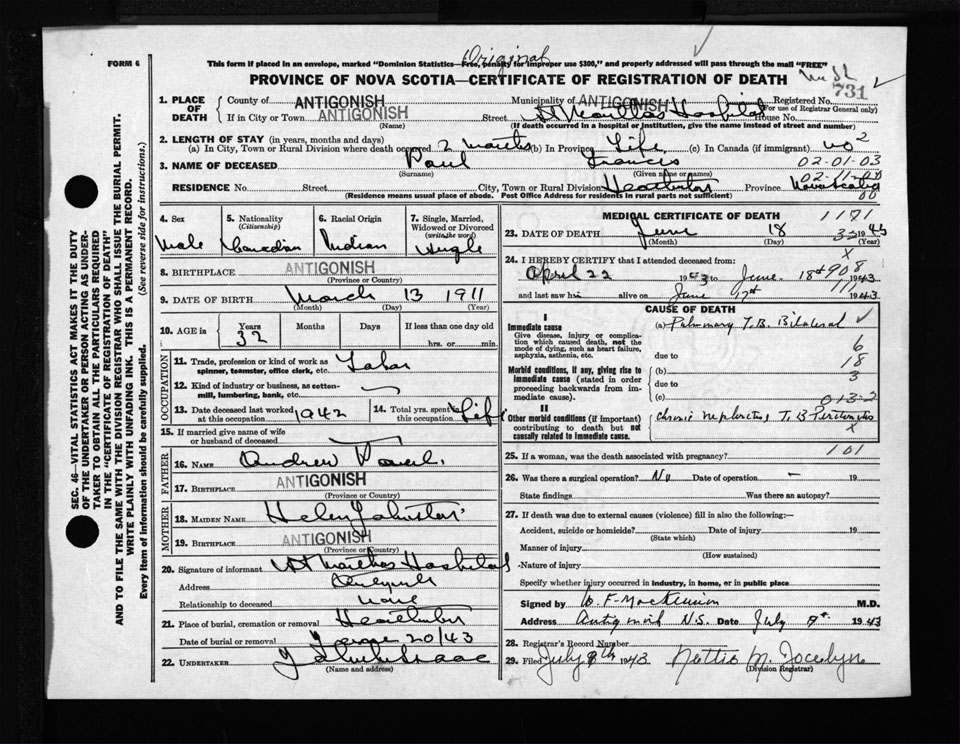 Original
FORM 6
This form if placed in an envelope, marked "Dominion Statistics—Free, penalty for improper use $300," and properly addressed will pass through the mail "FREE"
PROVINCE OF NOVA SCOTIA—CERTIFICATE OF REGISTRATION OF DEATH
731
1. PLACE OF DEATH
County of ANTIGONISH Municipality of ANTIGONISH Registered No.
(For use of Registrar General only)
If in City or Town ANTIGONISH Street St Marthas Hospital House No.
(Name) (If death occurred in a hospital or institution, give the name instead of street and number)
2. LENGTH OF STAY (in years, months and days)
(a) In City, Town or Rural Division where death occurred 2 months (b) In Province Life (c) In Canada (if immigrant) no
2
3. NAME OF DECEASED Paul Francis
(Surname) (Given name or names)
02-01-03
02-11-00
RESIDENCE No. Street City, Town or Rural Division Heatherton Province Nova Scotia
(Residence means usual place of abode. Post Office Address for residents in rural parts not sufficient)
00
4. Sex Male
5. Nationality (Citizenship) Canadian
6. Racial Origin Indian
7. Single, Married, Widowed or Divorced (write the word) Single
8. BIRTHPLACE ANTIGONISH
(Province or Country)
9. DATE OF BIRTH March 13 1911
(Month) (Day) (Year)
10. AGE in Years Months Days If less than one day old
32 hrs. or min.
OCCUPATION
11. Trade, profession or kind of work as spinner, teamster, office clerk, etc. Labor
12. Kind of industry or business, as cotton-mill, lumbering, bank, etc.
13. Date deceased last worked at this occupation 1942
14. Total yrs. spent in this occupation Life
15. If married give name of wife or husband of deceased
FATHER
16. NAME Andrew Paul
17. BIRTHPLACE ANTIGONISH
(Province or Country)
MOTHER
18. MAIDEN NAME Helen Johnston
19. BIRTHPLACE ANTIGONISH
(Province or Country)
20. Signature of informant St Marthas Hospital
Address Antigonish
Relationship to deceased none
21. Place of burial, cremation or removal Heatherton
Date of burial or removal June 20/43
22. UNDERTAKER Isaac
(Name and address)
MEDICAL CERTIFICATE OF DEATH
1171
23. DATE OF DEATH June 18 1943
(Month) (Day) (Year)
32
x
24. I HEREBY CERTIFY that I attended deceased from:
April 22 1943 to June 18th 1943
908
111
and last saw him alive on June 17th 1943
CAUSE OF DEATH
I
Immediate cause
Give disease, injury or complication which caused death, not the mode of dying, such as heart failure, asphyxia, asthenia, etc.
(a) Pulmonary T.B. Bilateral
due to
6
Morbid conditions, if any, giving rise to immediate cause (stated in order proceeding backwards from immediate cause).
(b)
18
due to
3
(c)
013-2
II
Other morbid conditions (if important) contributing to death but not causally related to immediate cause.
Chronic nephritis T.B. Peritonitis
x
25. If a woman, was the death associated with pregnancy?
101
26. Was there a surgical operation? No Date of operation — 19
State findings Was there an autopsy?
27. If death was due to external causes (violence) fill in also the following:—
Accident, suicide or homicide? Date of injury 19
(State which)
Manner of injury
(How sustained)
Nature of injury
Specify whether injury occurred in industry, in home, or in public place
Signed by W. F. MacKinnon M.D.
Address Antigonish N.S. Date July 8th 1943
28. Registrar's Record Number
29. Filed July 8th 1943 Nettie M. Jocelyn
(Division Registrar)
SEC. 46—VITAL STATISTICS ACT MAKES IT THE DUTY OF THE UNDERTAKER OR PERSON ACTING AS UNDERTAKER TO OBTAIN ALL THE PARTICULARS REQUIRED IN THE "CERTIFICATE OF REGISTRATION OF DEATH" AND TO FILE THE SAME WITH THE DIVISION REGISTRAR WHO SHALL ISSUE THE BURIAL PERMIT.
WRITE PLAINLY WITH UNFADING INK. THIS IS A PERMANENT RECORD.
Every item of information should be carefully supplied. (See reverse side for instructions.)